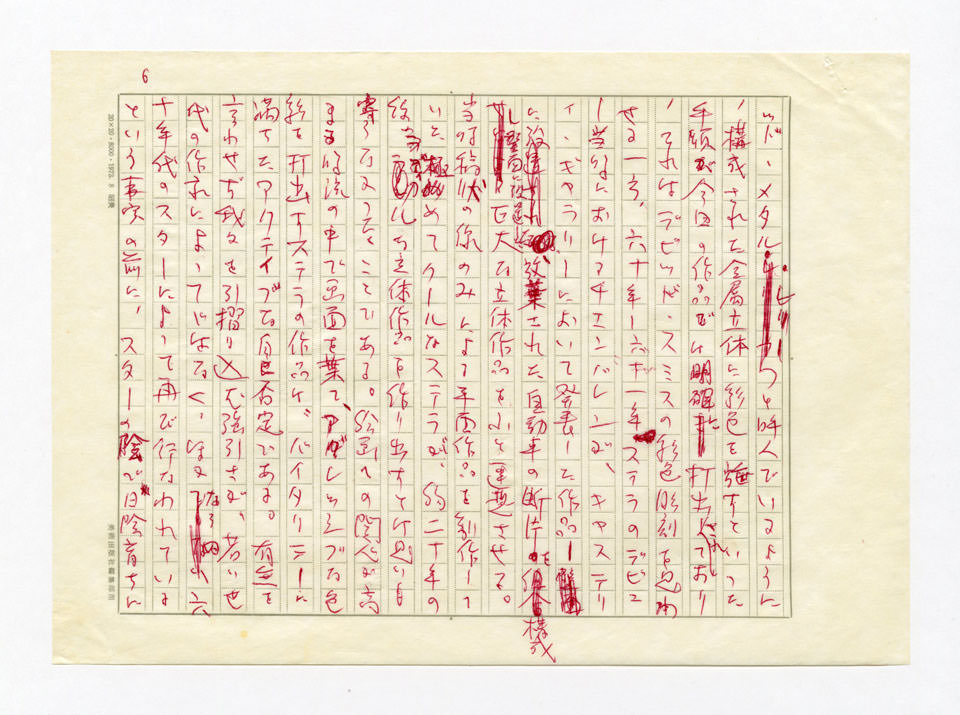 6
ッド・メタル・レリーフと呼んでいるように
、構成された金属立体に彩色を施すといった
手順が今回の作品では明確に打出されており
、それはデビッド・スミスの彩色彫刻を思わ
せる一方、六十年一六十一年ステラのデビュ
ー当初におけるチェンバレンが、キャステリ
ィ・ギャラリーにおいて発表した作品ー
に放棄された自動車の断片を構成
し 巨大な立体作品をふと連想させる。
当初縞状の線のみによる平面作品を制作して
いた極めてクールなステラが、約二十年の
後 ルな立体作品を作り出すとは思いも
寄らなかったことである。絵画への関心が高
まる潮流の中で画面を棄て、アグレッシブな色
彩を打出すステラの作品は、バイタリティーに
満ちたアクティブな自己否定である。有無を
言わせず我々を引摺り込む強引さが、若い世
代の作家によってではなく、ほかならぬ六
十年代のスターによって再び行なわれている
という事実の前に、スターの陰で日陰育ちに
20×20・8000・1973.8 昭典
美術出版社編集部用